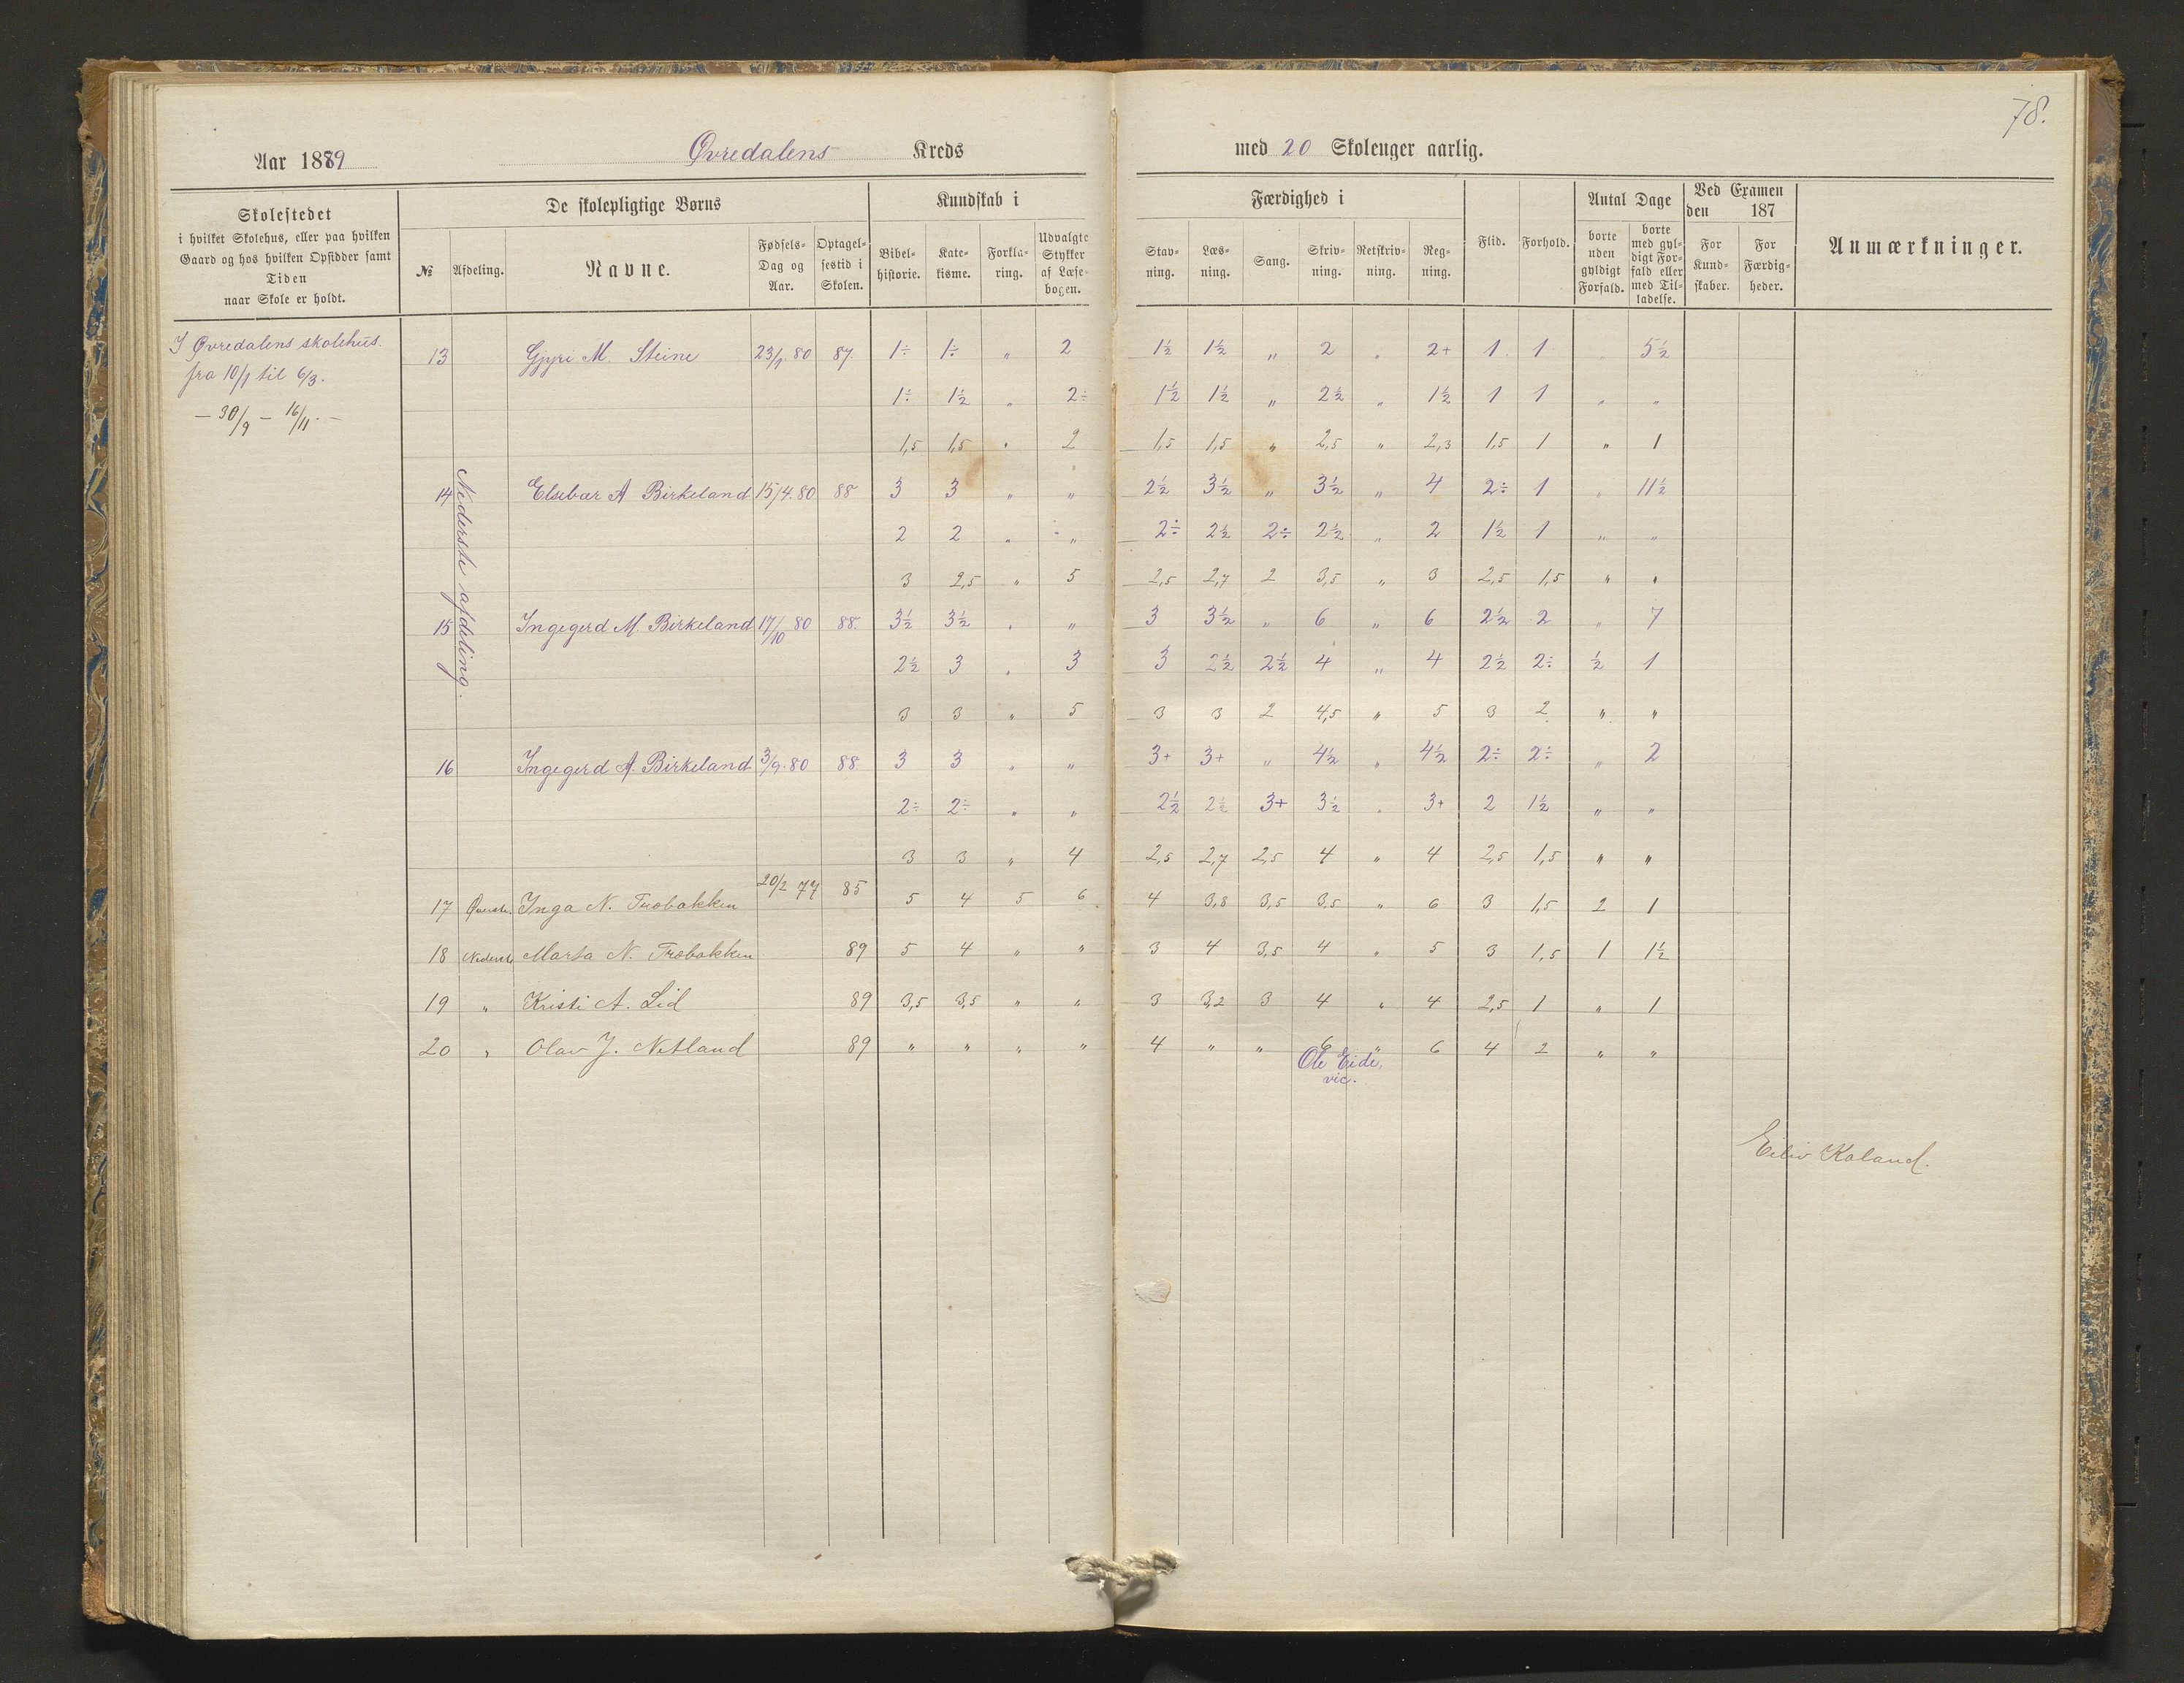 78.
Aar 1889 Øvredalens Kreds med 20 Skoleuger aarlig.
Skolestedet
i hvilket Skolehus, eller paa hvilken
Gaard og hos hvilken Opsidder samt
Tiden
naar Skole er holdt.
De skolepligtige Børns
№ Afdeling. Navne. Fødsels-Dag og Aar. Optagelsestid i Skolen.
Kundskab i
Bibelhistorie. Katekisme. Forklaring. Udvalgte Stykker af Læsebogen.
Færdighed i
Stavning. Læsning. Sang. Skrivning. Retskrivning. Regning.
Flid. Forhold.
Antal Dage
borte uden gyldigt Forfald. borte med gyldigt Forfald eller med Tilladelse.
Ved Examen
den 187
For Kundskaber. For Færdigheder.
Anmærkninger.
I Øvredalens skolehus.
fra 10/1 til 6/3.
— 30/9 — 16/11. —
Nederste afdeling.
13 Gyri M. Steine 23/1 80 87. 1÷ 1÷ „ 2 1½ 1½ „ 2 „ 2+ 1 1 „ 5½
1÷ 1½ „ 2÷ 1½ 1½ „ 2½ „ 1½ 1 1 „ „
1,5 1,5 „ 2 1,5 1,5 „ 2,5 „ 2,3 1,5 1 „ 1
14 Elsebær A Birkeland 15/4.80 88 3 3 „ „ 2½ 3½ „ 3½ „ 4 2÷ 1 „ 11½
2 2 „ „ 2÷ 2½ 2÷ 2½ „ 2 1½ 1 „ „
3 2,5 „ 5 2,5 2,7 2 3,5 „ 3 2,5 1,5 „ „
15 Ingegerd M. Birkeland 17/10 80 88. 3½ 3½ „ „ 3 3½ „ 6 „ 6 2½ 2 „ 7
2½ 3 „ 3 3 2½ 2½ 4 „ 4 2½ 2÷ ½ 1
3 3 „ 5 3 3 2 4,5 „ 5 3 2 „ „
16 Ingegerd A. Birkeland 3/9.80 88 3 3 „ „ 3+ 3+ „ 4½ „ 4½ 2÷ 2÷ „ 2
2÷ 2÷ „ „ 2½ 2½ 3+ 3½ „ 3+ 2 1½ „ „
3 3 „ 4 2,5 2,7 2,5 4 „ 4 2,5 1,5 „ „
17 Øverste. Inga N. Træbakken 20/2 77 85 5 4 5 6 4 3,8 3,5 3,5 „ 6 3 1,5 2 1
18 Nederste Marta N. Træbakken 89 5 4 „ „ 3 4 3,5 4 „ 5 3 1,5 1 1½
19 „ Kristi A. Lid 89 3,5 3,5 „ „ 3 3,2 3 4 „ 4 2,5 1 „ 1
20 „ Olav J. Netland 89 „ „ „ „ 4 „ „ 6 „ 6 4 2 „ „
Ole Eide,
vic.
Eiliv Kaland.